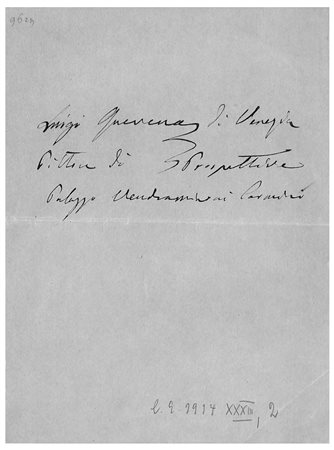 9623
Luigi Querena di Venezia
Pittor di Prospettive
Palazzo Vendramin ai Carmini
L. I. 1914 XXXIII, 2